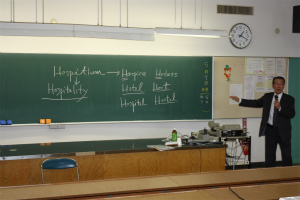 Hospitium → Hospice Hostess
↓ Hotel Host
Hospitality Hospital Hostel